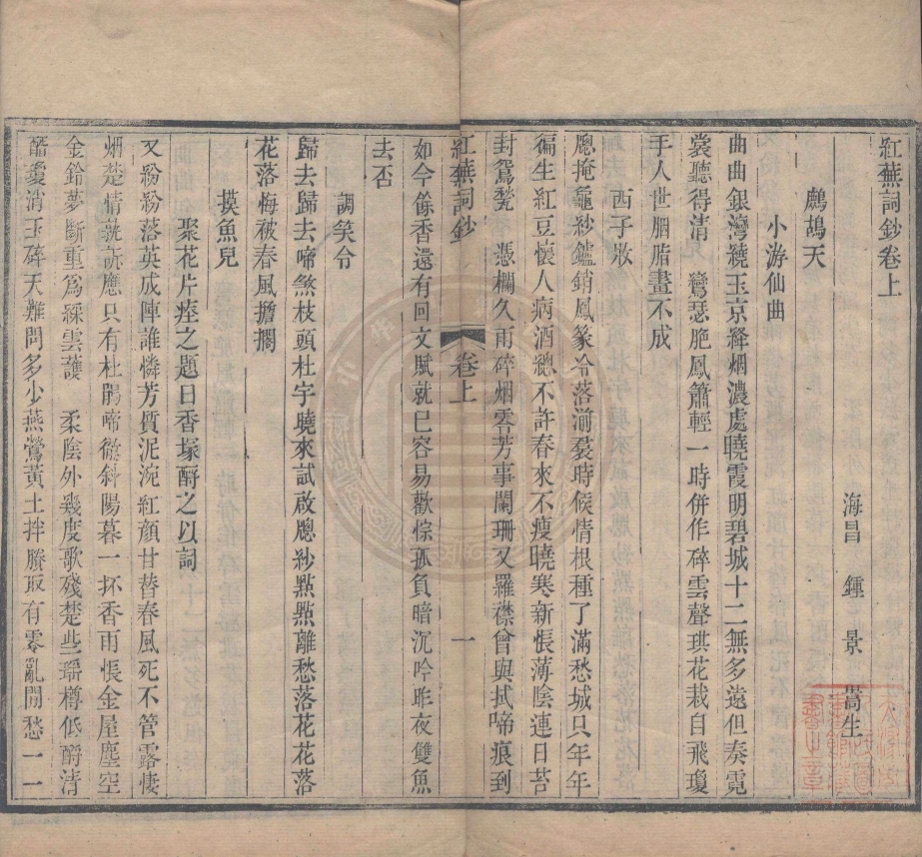 紅蕪詞鈔卷上
海昌 鍾景 嵩生
鷓鴣天
小游仙曲
曲曲銀灣繞玉京絳烟濃處曉霞明碧城十二無多遠但奏霓
裳聽得清 鸞瑟脆鳳簫輕一時併作碎雲聲琪花栽自飛瓊
手人世胭脂畫不成
西子妝
牕掩龜紗鑪銷鳳篆冷落湔裂時候情根種了滿愁城只年年
徧生紅豆懷人病酒總不許春來不瘦曉寒新悵薄陰連日苔
封鴛甃 憑欄久雨碎烟零芳事闌珊又羅襟曾與拭啼痕到
紅蕪詞鈔 卷上 一
如今餘香還有回文賦就已容易歡悰孤負暗沉吟昨夜雙魚
去否
調笑令
歸去歸去啼煞枝頭杜宇曉來試啟牕紗點點離愁落花花落
花落悔被春風擔擱
摸魚兒
聚花片瘞之題曰香塚酹之以詞
又紛紛落英成陣誰憐芳質泥涴紅顏甘替春風死不管露悽
烟楚情誰訴應只有杜鵑啼徹斜陽暮一抔香雨悵金屋塵空
金鈴夢斷重爲綵雲護 柔陰外幾度歌殘楚些瑤樽低酹清
醑瓊消玉碎天難問多少燕鶯黃土拌賸取有零亂閒愁一一